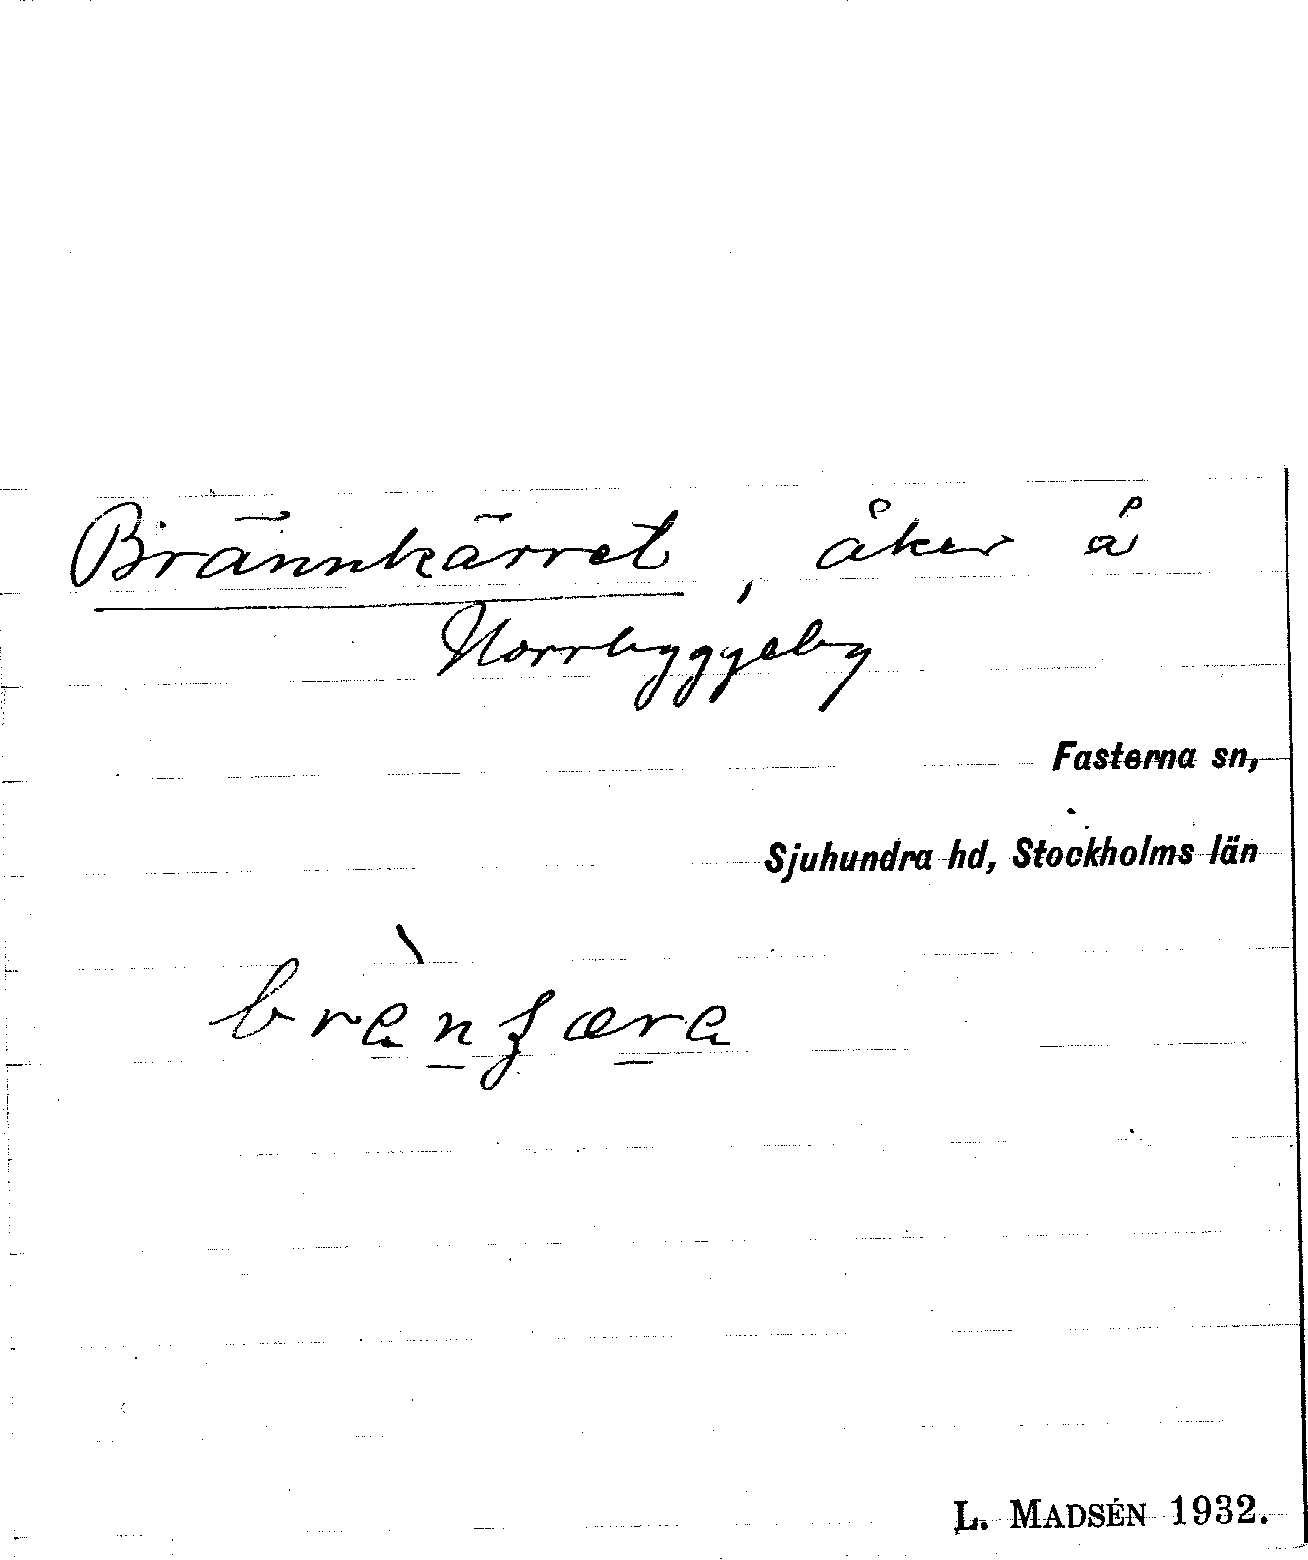 Brännkärret, åker å
Norrbyggeby
Fasterna sn,
Sjuhundra hd, Stockholms län
L. MADSÉN 1932.